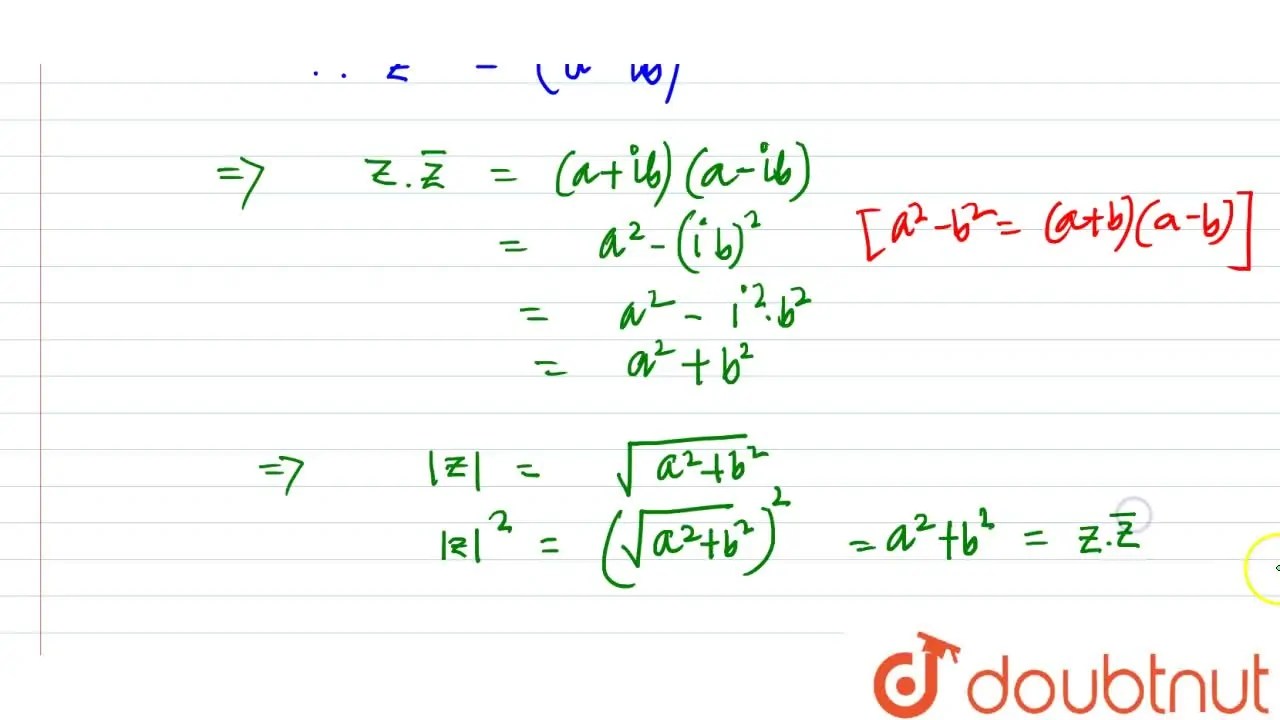 ⇒ z.z̅ = (a+ib)(a-ib)
= a²-(ib)² [a²-b²= (a+b)(a-b)]
= a² - i².b²
= a²+b²
⇒ |z| = √(a²+b²)
|z|² = (√(a²+b²))² = a²+b² = z.z̅
doubtnut